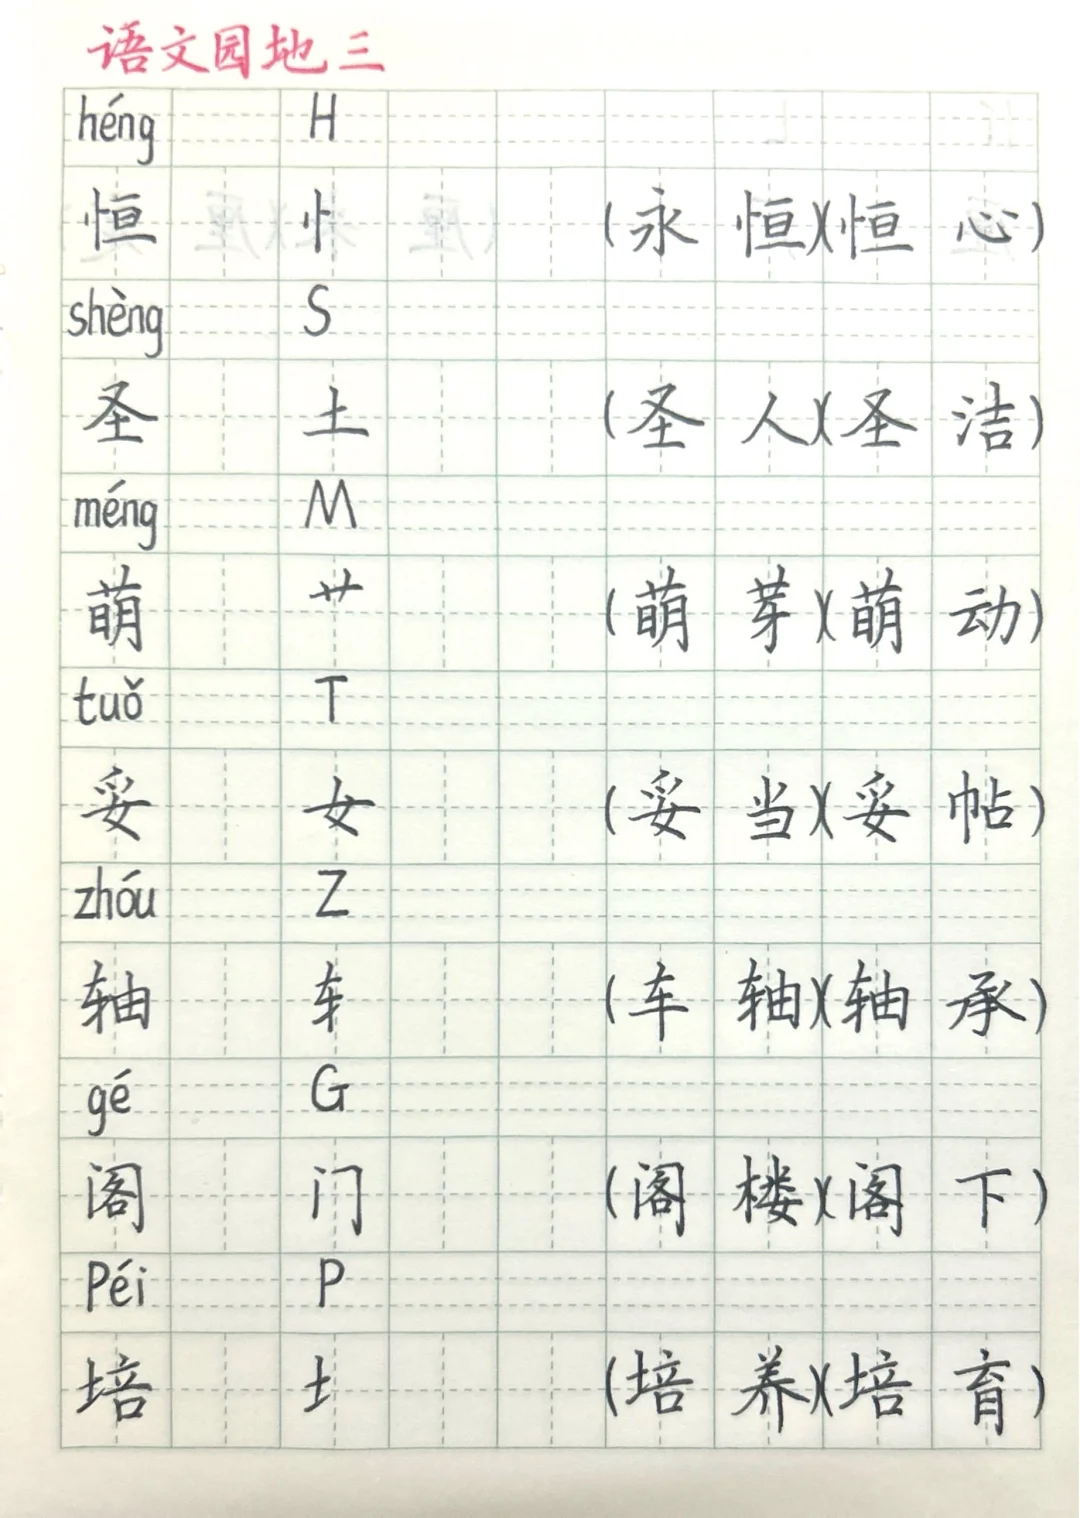 语文园地三
héng H
恒 忄 (永恒)(恒心)
shèng S
圣 土 (圣人)(圣洁)
méng M
萌 艹 (萌芽)(萌动)
tuǒ T
妥 女 (妥当)(妥帖)
zhóu Z
轴 车 (车轴)(轴承)
gé G
阁 门 (阁楼)(阁下)
Péi P
培 土 (培养)(培育)